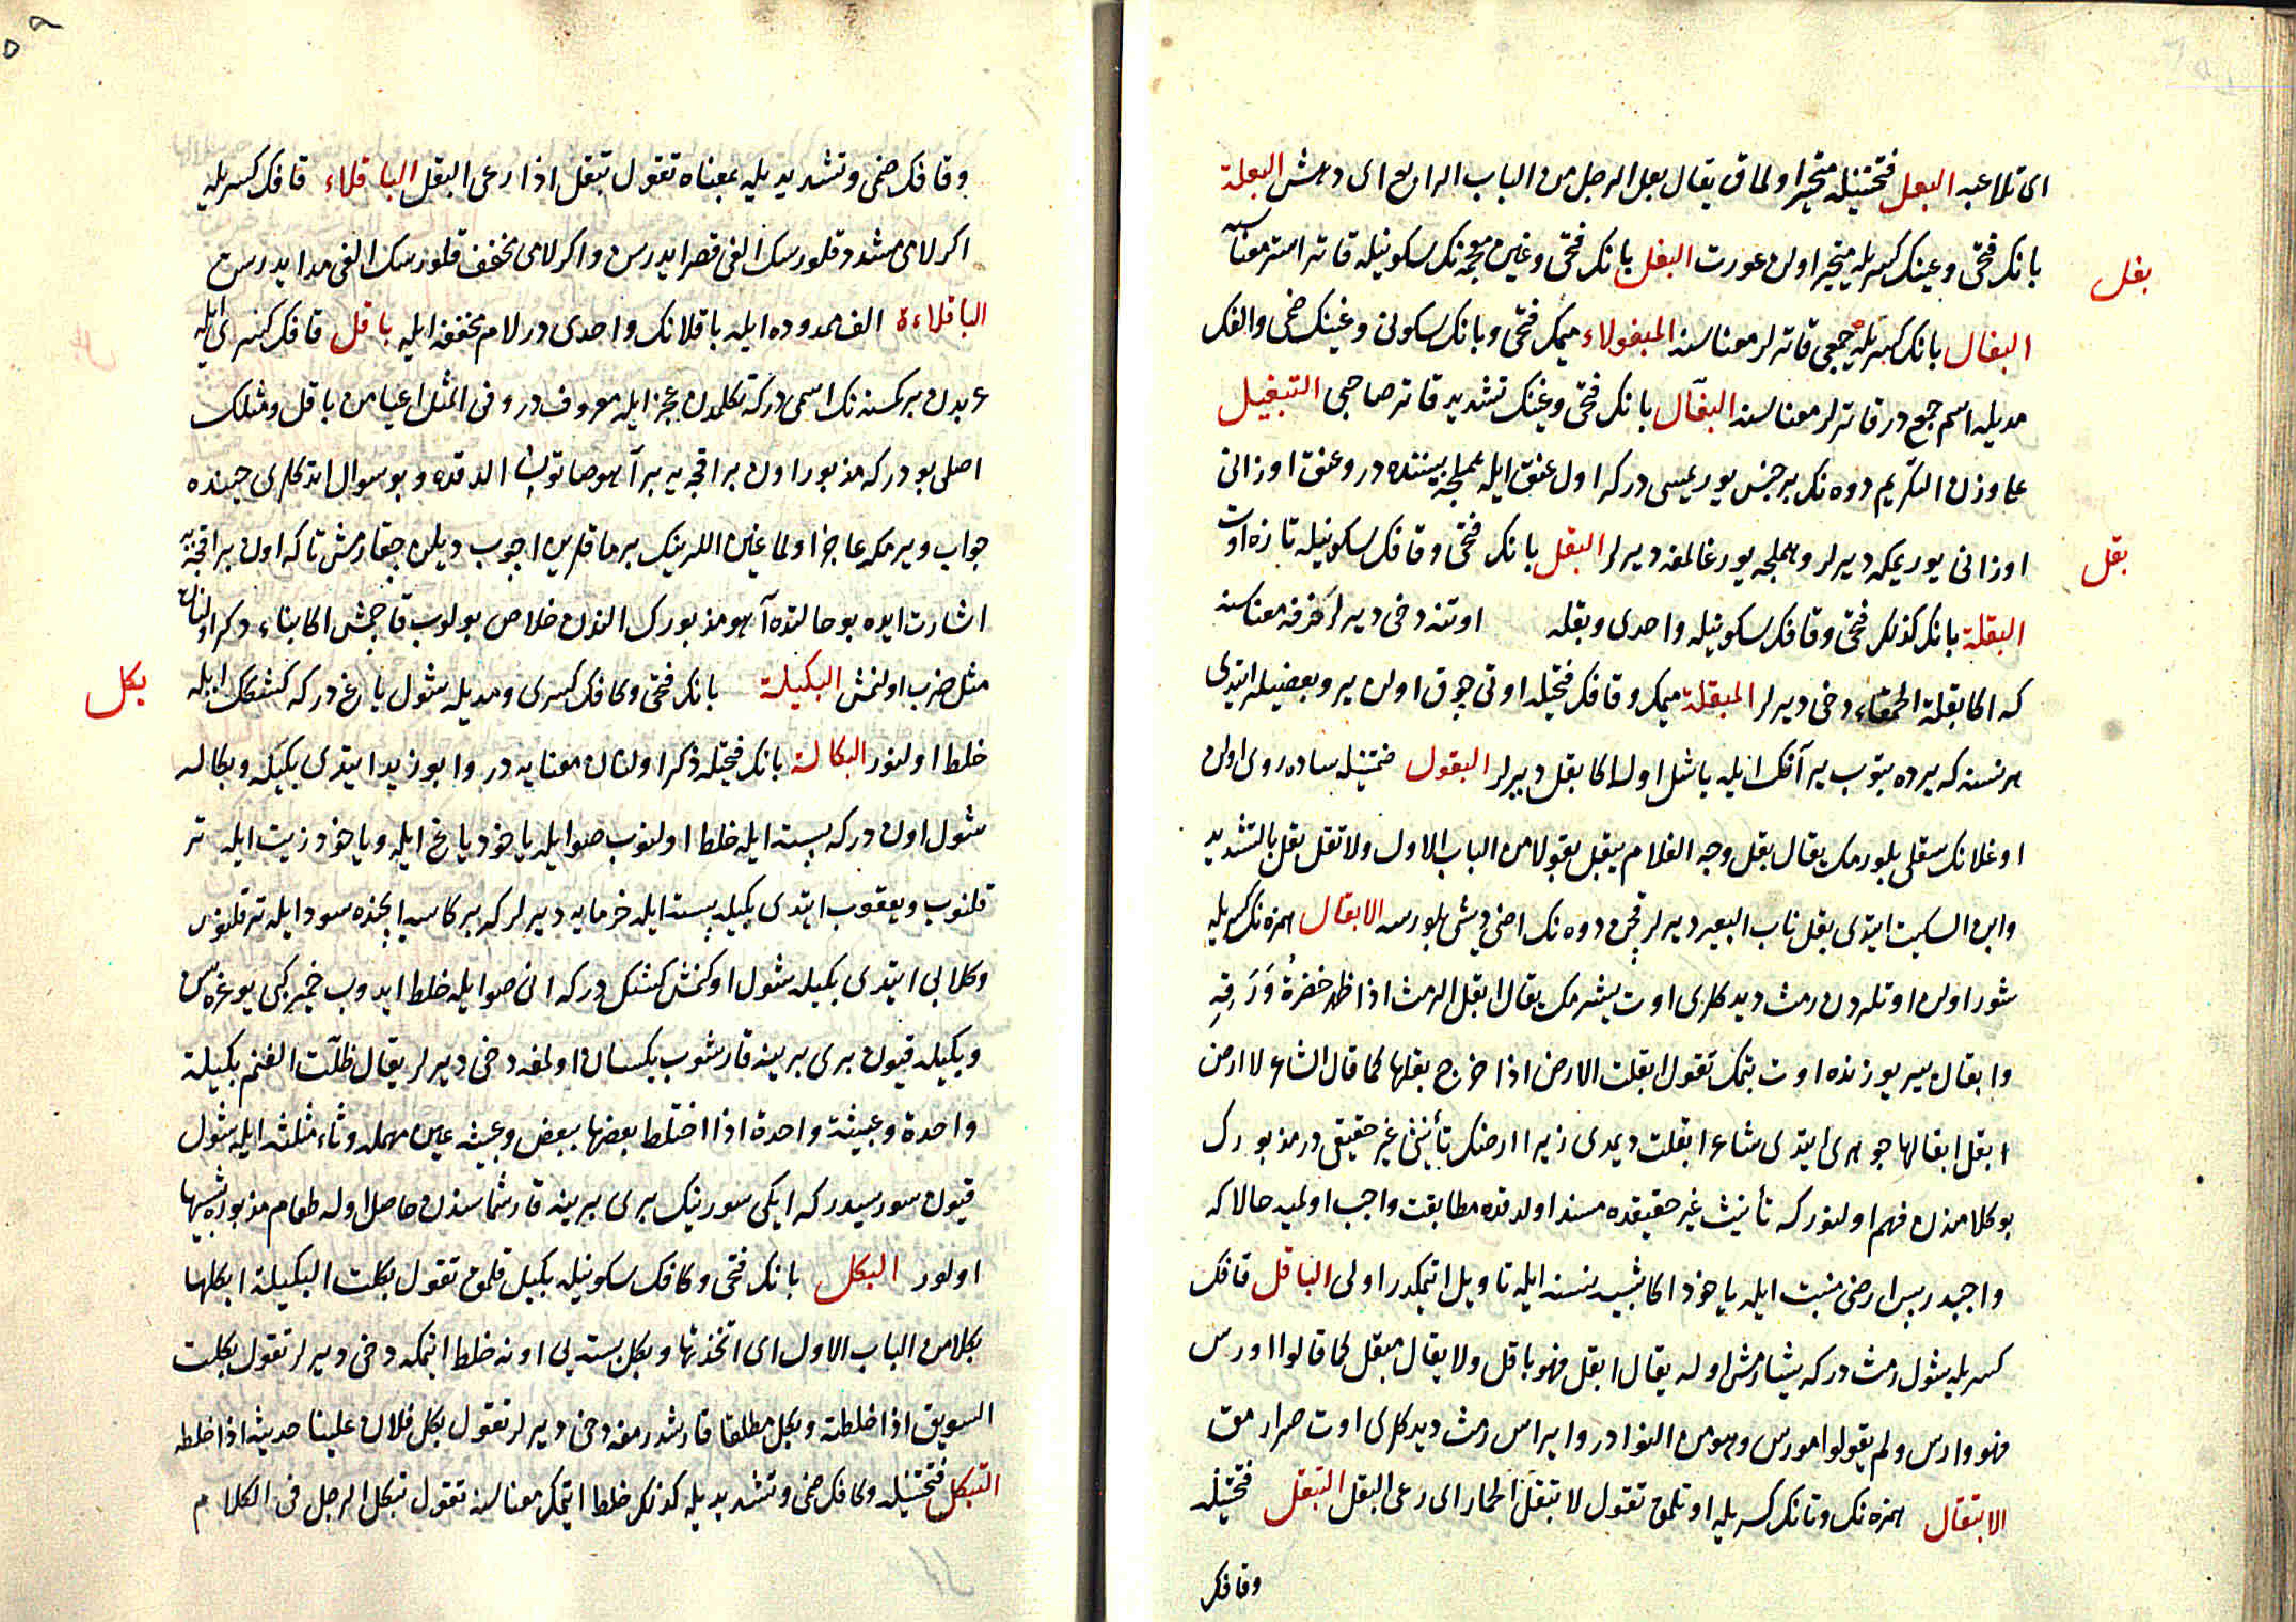 ای تلاعبه البعل فتحتیله متحیر اولماق یقال بعل الرجل من الباب الرابع ای دهش البعلة
بانك فتحی وعینك كسریله متحیر اولن عورت البغل بانك فتحی وغین معجمه نك سكونیله قاتر استر معناسنه
بغل
البغال بانك كسریله جمعی قاترلر معناسنه المبغولاء میمك فتحی وبانك سكونی وغینك ضمی والفك
مدیله اسم جمع در قاترلر معناسنه البغّال بانك فتحی وغینك تشدید قاتر صاحبی التبغیل
علی وزن التكریم دوه نك بر جنس یوریمسی دركه اول عنق ایله هملجه بیننده در وعنق اوزانی
اوزانی یوریمكه دیرلر وهملجه یورغالمغه دیرلر البقل بانك فتحی وقافك سكونیله تازه اوت
بقل
البقلة بانك كذلك فتحی وقافك سكونیله واحدی وبقله اوتنه دخی دیرلر خرفه معناسنه
كه اكا بقلة الحمقاء دخی دیرلر المبقلة میمك وقافك فتحیله اوتی چوق اولن یر وبعضیلر ایتدی
هر نسنه كه یرده بتوب یر آنك ایله یاشل اولا اكا بقل دیرلر البقول ضمتیله ساده روی اولن
اوغلانك سقلی بلورمك یقال بقل وجه الغلام یبقل بقولا من الباب الاول ولا تقل بقل بالتشدید
وابن السكیت ایتدی بقل ناب البعیر دیرلر قچن دوه نك اضی دیشی بلورسه الابقال همزه نك كسریله
شور اولن اوتلردن رمث دیدكلری اوت یشرمك یقال ابقل الرمث اذا ظهر خضرةُ وَرَقِهِ
وابقال یر یوزنده اوت بتمك تقول ابقلت الارض اذا خرج بقلها كما قال الشاعر لا ارض
ابقل ابقالها جوهری ایتدی شاعر ابقلت دیمدی زیرا ارضك تأنیثی غیر حقیقی در مذبورك
بو كلامندن فهم اولنور كه تأنیث غیر حقیقیده مسند اولدقده مطابقت واجب اولمیه حالا كه
واجبدر پس ارضی منبت ایله یاخود اكا شبیه نسنه ایله تاویل ایتمكدر اولی الباقل قافك
كسریله شول رمث دركه یشارمش اوله یقال ابقل فهو باقل ولا یقال مبقل كما قالوا اورس
فهو وارس ولم یقولوا مورس وهو من النوادر وایراس رمث دیدكلری اوت صرارمق
الابتقال همزه نك وتانك كسریله اوتلمق تقول لا یتبقل الحمار ای رعی البقل التبقل فتحتیله
وقافك
وقافك ضمی وتشدیدیله بمعناه تقول تبقل اذا رعی البقل الباقلاء قافك كسریله
اكر لامی مشدد قلورسك الفی قصر ایدرسن واكر لامی مخفف قلورسك الفی مد ایدرسن
الباقلاءة الف ممدوده ایله باقلانك واحدی در لام مخففه ایله باقل قافك كسری ایله
عربدن بر كمسنه نك اسمی دركه تكلمدن عجز ایله معروف در وفی المثل اعیا من باقل ومثلك
اصلی بودر كه مذبور اون بر اقچه یه بر آهو صاتون الدقده وبو سوال ایتدكلری حینده
جواب ویرمكه عاجز اولماغین اللرینك برمقلرین اچوب دیلن چقارمش تا كه اون بر اقچه یه
اشارت ایده بو حالتده آهو مذبورك الندن خلاص بولوب قاچمش اكا بناء ذكر اولنان
مثل ضرب اولنمش البكیلة بانك فتحی وكافك كسری ومدیله شول یاغ دركه كشك ایله
بكل
خلط اولنور البكالة بانك فتحیله ذكر اولنان معنایه در وابو زید ایتدی بكیله وبكاله
شول اون دركه بسته ایله خلط اولنوب صو ایله یاخود یاغ ایله ویاخود زیت ایله تر
قلنوب ویعقوب ایتدی بكیله بسته ایله خرمایه دیرلر كه بر كاسه ایچنده سود ایله تر قلنور
وكلابی ایتدی بكیله شول اوكنمش كشك دركه انی صو ایله خلط ایدوب خمیر كبی یوغره سن
وبكیله قیون بری برینه قارشوب یكسان اولمغه دخی دیرلر یقال ظلّت الغنم بكیلة
واحدة وعبیثة واحدة اذا اختلط بعضها ببعض وعبیثه عین مهمله وثاء مثلثه ایله شول
قیون سوریسیدر كه ایكی سورینك بری برینه قارشماسندن حاصل اوله طعام مذبوره شبیها
اولور البكل بانك فتحی وكافك سكونیله بكیل قلمق تقول بكلت البكیلة ابكلها
بكلا من الباب الاول ای اتخذتها وبكل بسته یی اونه خلط ایتمكه دخی دیرلر تقول بكلت
السویق اذا خلطته وبكل مطلقا قارشدرمغه دخی دیرلر تقول بكل فلان علینا حدیثه اذا خلطه
التبكل فتحتیله وكافك ضمی وتشدیدیله كذلك خلط ایتمك معناسنه تقول تبكل الرجل فی الكلام